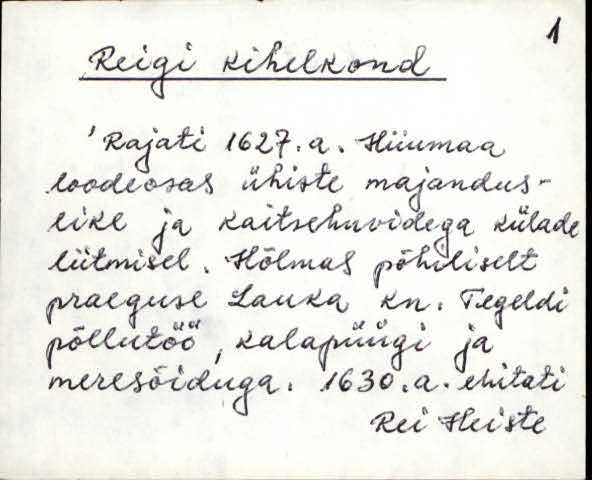 1
Reigi kihelkond
Rajati 1627. a. Hiiumaa
loodeosas ühiste majandus-
like ja kaitsehuvidega külade
liitmisel. Hõlmas põhiliselt
praeguse Lauka kn. Tegeldi
põllutöö, kalapüügi ja
meresõiduga. 1630. a. ehitati
Rei Heiste